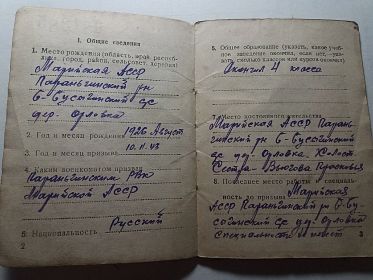 I. Общие сведения
1. Место рождения (область, край, респуб-
лика, город, район, сельсовет, деревня)
Марийская АССР
Параньгинский рн
Б-Бусогинский с/с
дер. Орловка
2. Год и месяц рождения 1926 Август
3. Год и месяц призыва 10.11.43
4. Каким военкоматом призван
Параньгинским РВК
Марийской АССР
5. Национальность Русский
2
6. Общее образование (указать, какое учеб-
ное заведение окончил, если нет, —ука-
зать, сколько классов или курсов окончил)
Окончил 4 класса
7. Место постоянного жительства
Марийская АССР Парань-
гинский рн Б-Бусогинский
с/с д. Орловка
Сестра
8. Последнее место работы и специаль-
ность до призыва Марийская
АССР Параньгинский рн Б-Бу-
согинский с/с д. Орловка
специальности не имеет
3